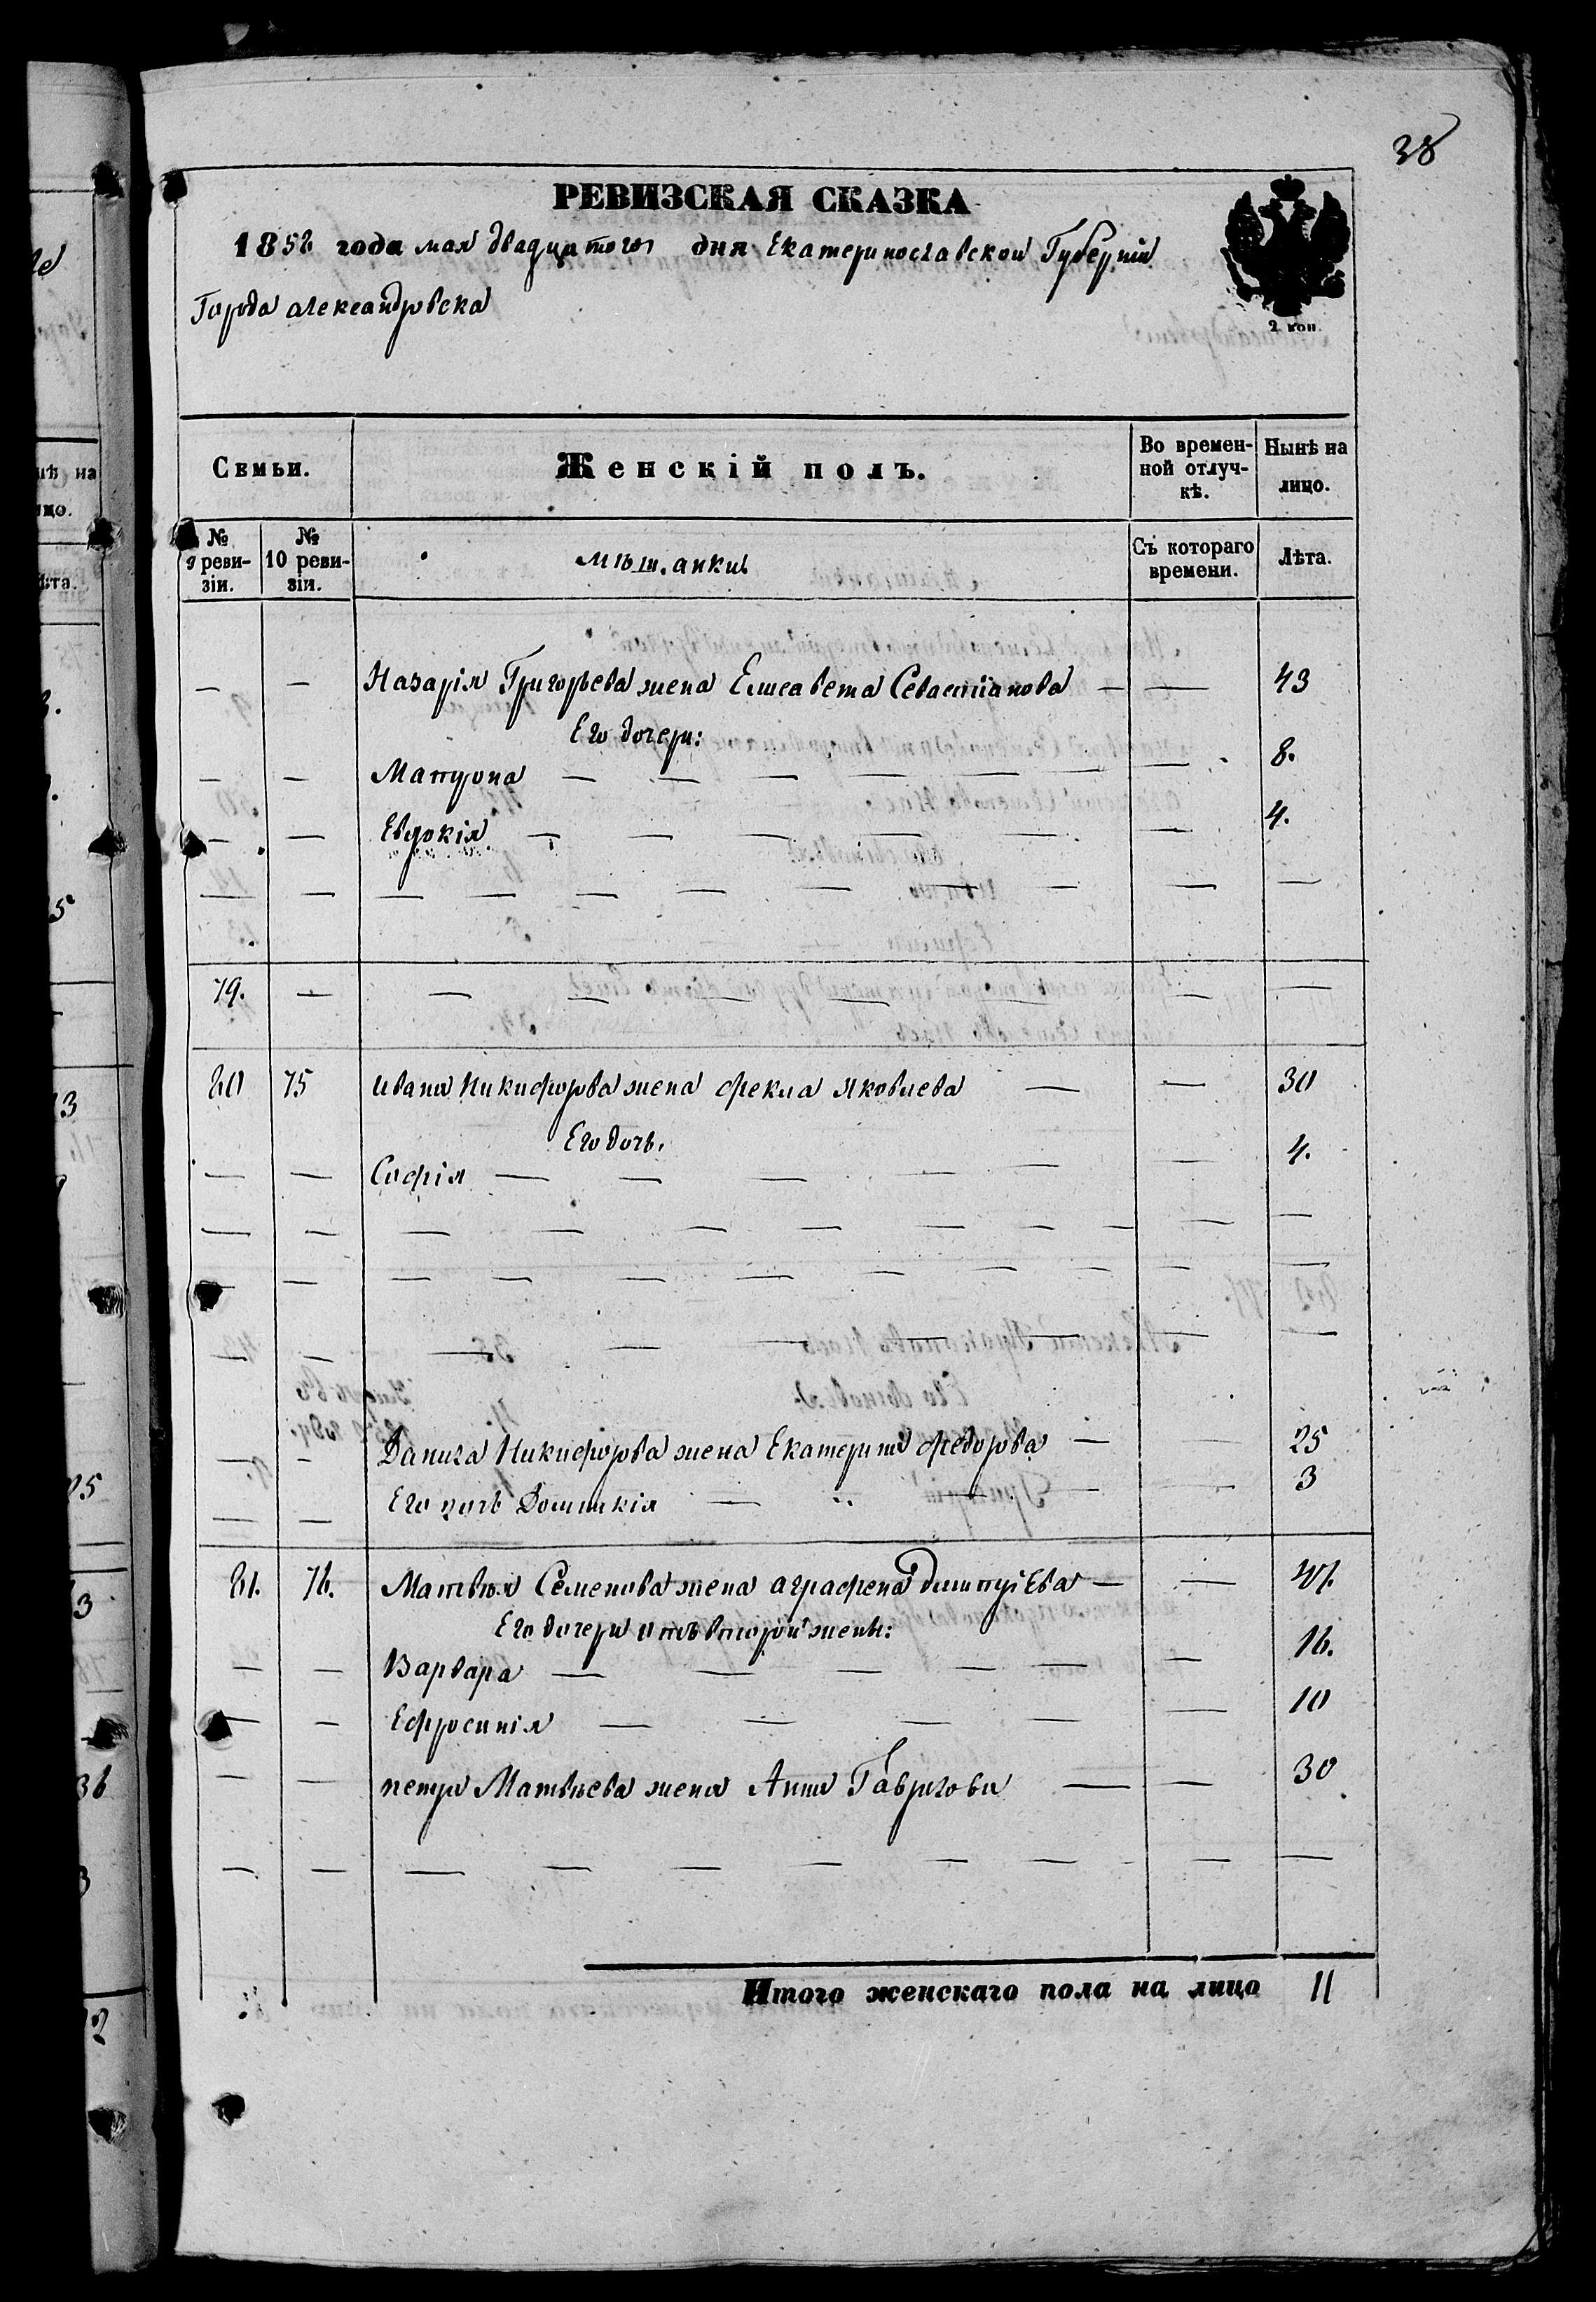 38
РЕВИЗСКАЯ СКАЗКА
1858 года мая двадцатого дня Екатеринославской Губерніи
Города александровска
2 коп.
Семьи. Женскій полъ. Во времен-ной отлуч-кѣ. Нынѣ на лицо.
№ 9 реви-зіи. № 10 реви-зіи. мѣщанки Съ котораго времени. Лѣта.
— — Назарія Григорьева жена Елисавета Севастіанова — — 43
Его дочери:
— — Матрона — — — — — — — 8.
— — Евдокія — — — — — — 4.
— — — — — — — — — — —
79. — — — — — — — —
80 75 ивана Никифорова жена фекла Яковлева — — 30
Его дочь.
— — Софія — — — — — — 4.
— — — — — — — — — — —
— — — — — — — — — — —
— — — — — — — —
— — Данила Никифорова жена Екатерина федорова — — 25
— — Его дочь Домникія — — — — 3
81. 76. Матвѣя Семенова жена аграфена дмитріева — — 47.
Его дочери отъ второй жены:
— — Варвара — — — — — — 16.
— — Ефросинія — — — — — 10
— — петра Матвѣева жена Анна Гаврилова — — 30
— — — — — — — — — — —
Итого женскаго пола на лицо 11